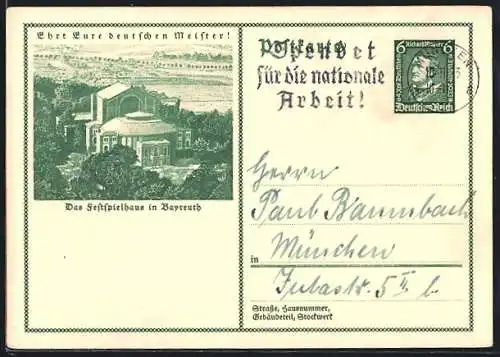 Ehrt Eure deutschen Meister!
Das Festspielhaus in Bayreuth
Postkarte
Spendet
für die nationale
Arbeit!
6 Richard Wagner 6
Deutsches Reich
Herrn
Paul Baumbach
in München
Jutastr. 5 II b.
Straße, Hausnummer,
Gebäudeteil, Stockwerk